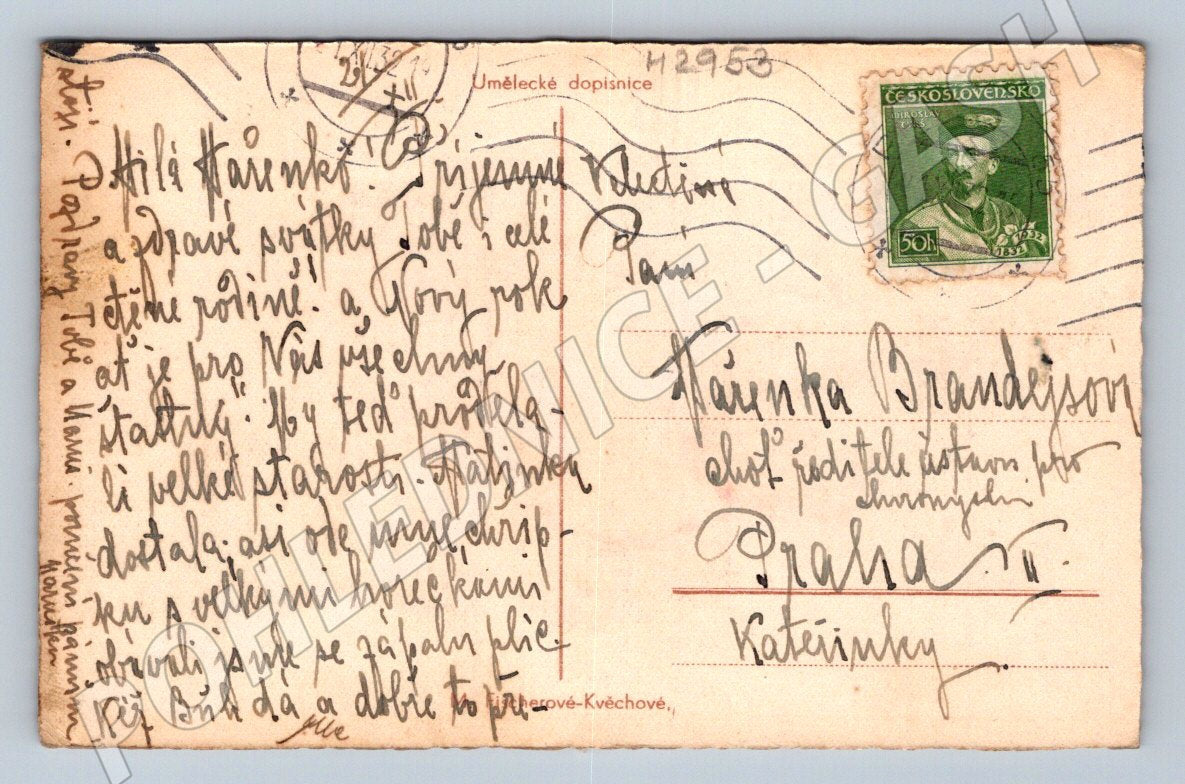 H2953
Umělecké dopisnice
ČESKOSLOVENSKO
MIROSLAV
TYRŠ
50h
1832
1932
Milá Mářenko! Příjemné
a zdravé svátky Tobě i celé
ctěné rodině! a Nový rok
ať je pro Nás všechny
šťastný". My teď proděla-
li velké starosti. Mátinka
dostala asi ode mne chřip-
ku s velkými horečkami
obávali jsme se zápalu plic.
Kéž Bůh dá a dobře to pře-
Pozdravy Tobě a
Velectěná
Paní
Mářenka Brandejsová
choť ředitele ústavu pro
choromyslné
Praha II.
Kateřinky
M. Fischerové-Kvěchové.
POHLEDNICE - CASH